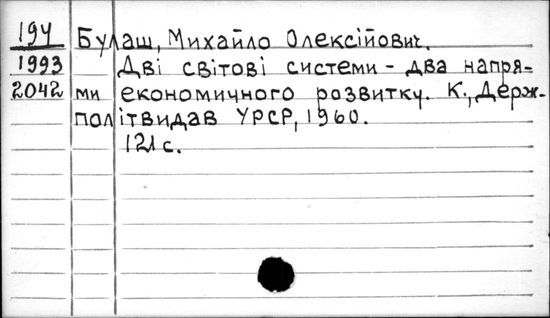 194 Булаш, Михайло Олексійович.
1993 Дві світові системи - два напря-
2042 ми економичного розвитку. К., Держ-
політвидав УРСР, 1960.
121 с.